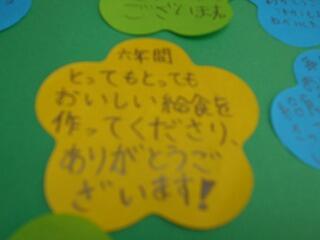 ございます
六年間
とってもとっても
おいしい給食を
作ってくださり、
ありがとうご
ざいます!